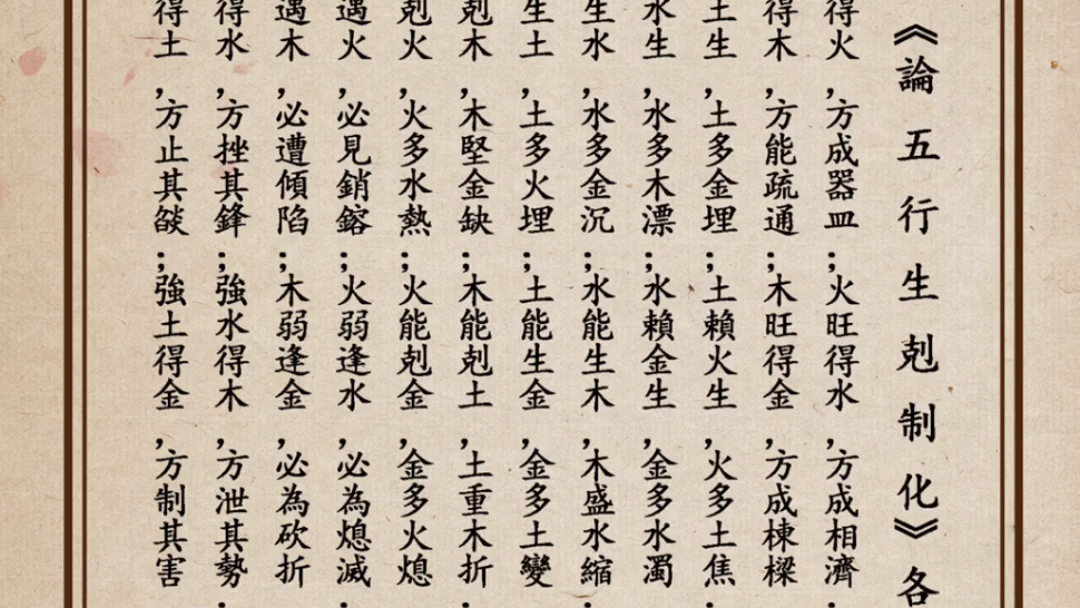 《論五行生剋制化》各
得火,方成器皿;火旺得水,方成相濟;
得木,方能疏通;木旺得金,方成棟樑
土生,土多金埋;土賴火生,火多土焦;
水生,水多木漂;水賴金生,金多水濁
生水,水多金沉;水能生木,木盛水縮;
生土,土多火埋;土能生金,金多土變
剋木,木堅金缺;木能剋土,土重木折;
剋火,火多水熱;火能剋金,金多火熄
遇火,必見銷鎔;火弱逢水,必為熄滅;
遇木,必遭傾陷;木弱逢金,必為砍折
得水,方挫其鋒;強水得木,方泄其勢;
得土,方止其燄;強土得金,方制其害